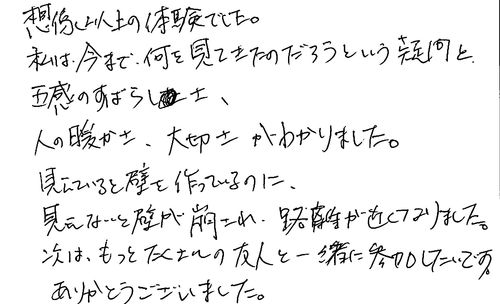 想像以上の体験でした。
私は、今まで、何を見てきたのだろうという疑問と、
五感のすばらしさ、
人の暖かさ、大切さがわかりました。
見えていると壁を作っているのに、
見えないと壁が崩され、距離が近くなりました。
次は、もっとたくさんの友人と一緒に参加したいです。
ありがとうございました。